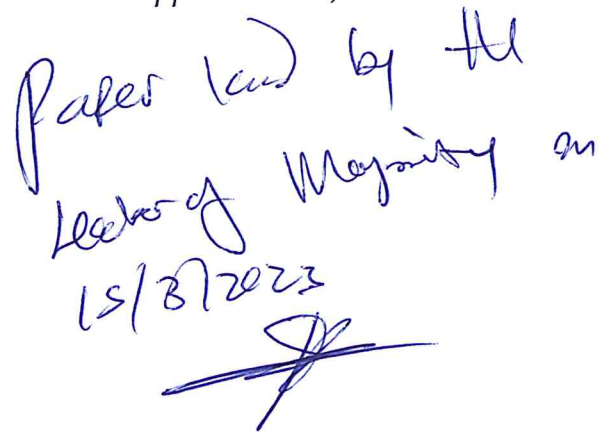 Paper laid by the
Leader of Majority on
15/3/2023